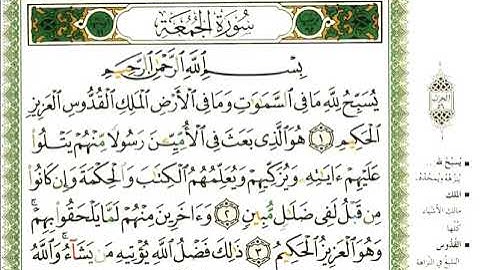 سُورَةُ الجُمُعَةِ
بِسْمِ ٱللَّهِ ٱلرَّحْمَٰنِ ٱلرَّحِيمِ
يُسَبِّحُ لِلَّهِ مَا فِى ٱلسَّمَٰوَٰتِ وَمَا فِى ٱلْأَرْضِ ٱلْمَلِكِ ٱلْقُدُّوسِ ٱلْعَزِيزِ
ٱلْحَكِيمِ ١ هُوَ ٱلَّذِى بَعَثَ فِى ٱلْأُمِّيِّـۧنَ رَسُولًا مِّنْهُمْ يَتْلُوا۟
عَلَيْهِمْ ءَايَٰتِهِۦ وَيُزَكِّيهِمْ وَيُعَلِّمُهُمُ ٱلْكِتَٰبَ وَٱلْحِكْمَةَ وَإِن كَانُوا۟
مِن قَبْلُ لَفِى ضَلَٰلٍ مُّبِينٍ ٢ وَءَاخَرِينَ مِنْهُمْ لَمَّا يَلْحَقُوا۟ بِهِمْ ۚ
وَهُوَ ٱلْعَزِيزُ ٱلْحَكِيمُ ٣ ذَٰلِكَ فَضْلُ ٱللَّهِ يُؤْتِيهِ مَن يَشَآءُ ۚ وَٱللَّهُ
يُسَبِّحُ لله ..
يُنَزِّهُهُ ويُمَجِّدُهُ..
الملك
مالك الأشياء
كلّها
القدّوس
البليغ في النزاهة